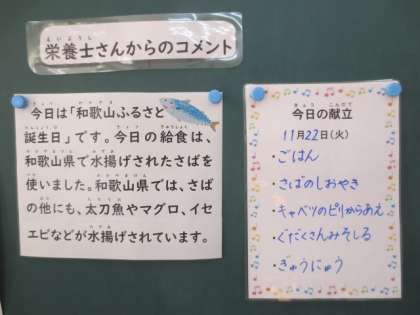 栄養士さんからのコメント
今日は「和歌山ふるさと
誕生日」です。今日の給食は、
和歌山県で水揚げされたさばを
使いました。和歌山県では、さば
の他にも、太刀魚やマグロ、イセ
エビなどが水揚げされています。
今日の献立
11月22日(火)
・ごはん
・さばのしおやき
・キャベツのピリからあえ
・ぐだくさんみそしる
・ぎゅうにゅう